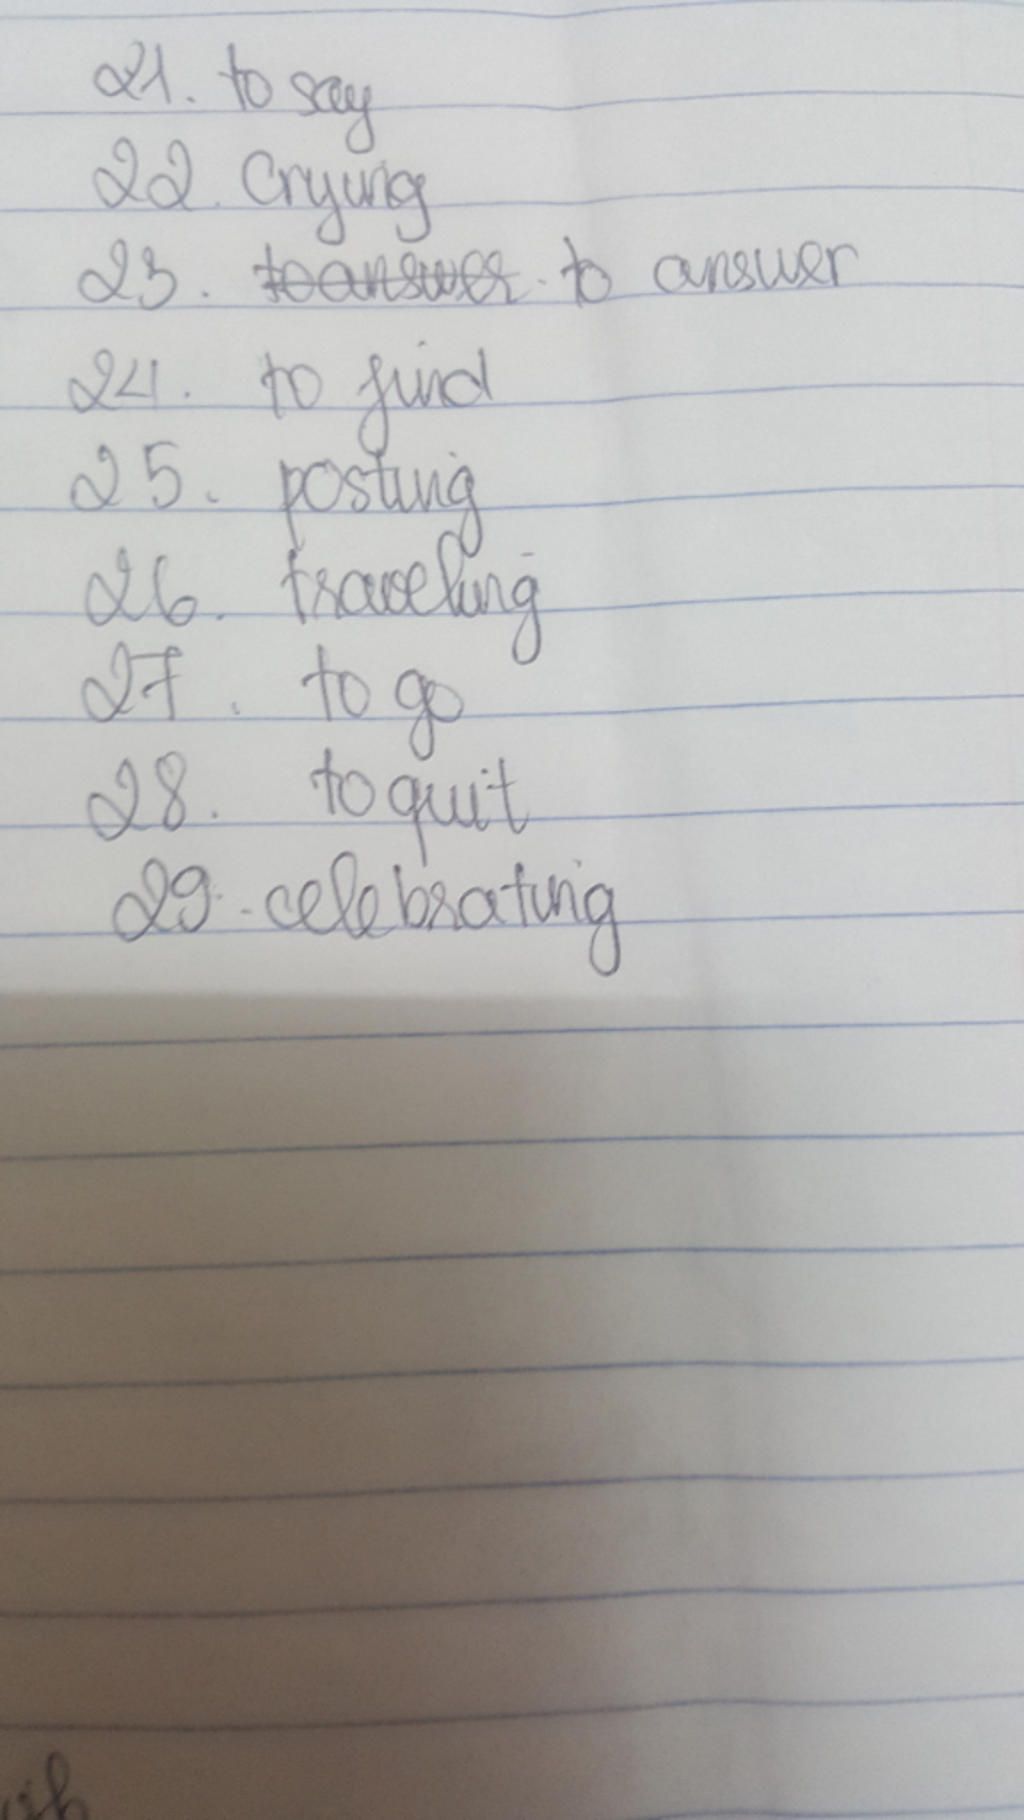 21. to say
22. Crying
23. toanswer. to answer
24. to find
25. posting
26. traveling
27. to go
28. to quit
29. celebrating